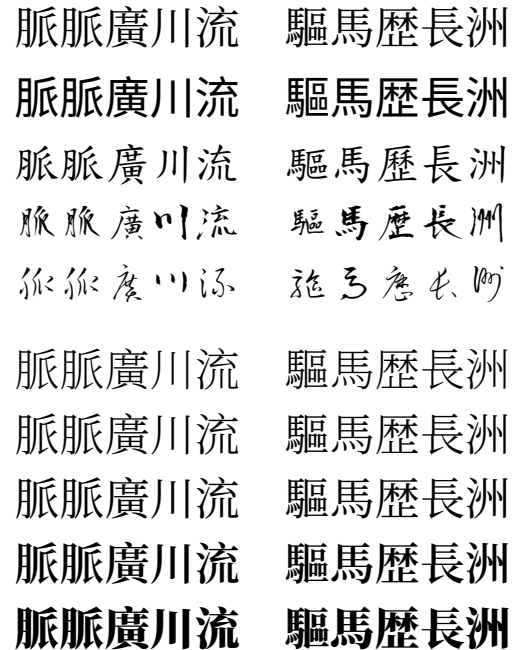 脈脈廣川流 驅馬歷長洲
脈脈廣川流 驅馬歷長洲
脈脈廣川流 驅馬歷長洲
脈脈廣川流 驅馬歷長洲
脈脈廣川流 驅馬歷長洲
脈脈廣川流 驅馬歷長洲
脈脈廣川流 驅馬歷長洲
脈脈廣川流 驅馬歷長洲
脈脈廣川流 驅馬歷長洲
脈脈廣川流 驅馬歷長洲